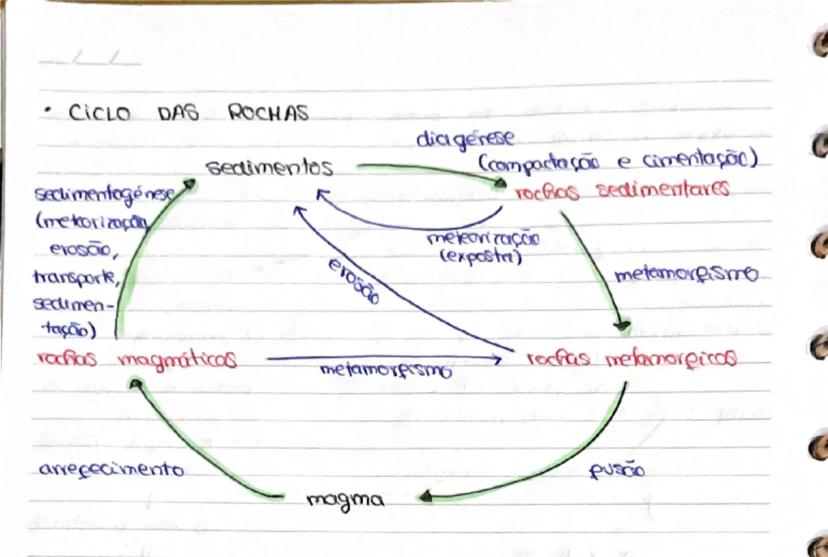 • CICLO DAS ROCHAS
diagénese
(compactação e cimentação)
sedimentos
rochas sedimentares
sedimentogénese
(meteorização,
erosão,
transporte,
sedimen-
tação)
meteorização
(exposta)
erosão
metamorfismo
rochas magmáticas
metamorfismo
rochas metamorficas
arrefecimento
fusão
magma